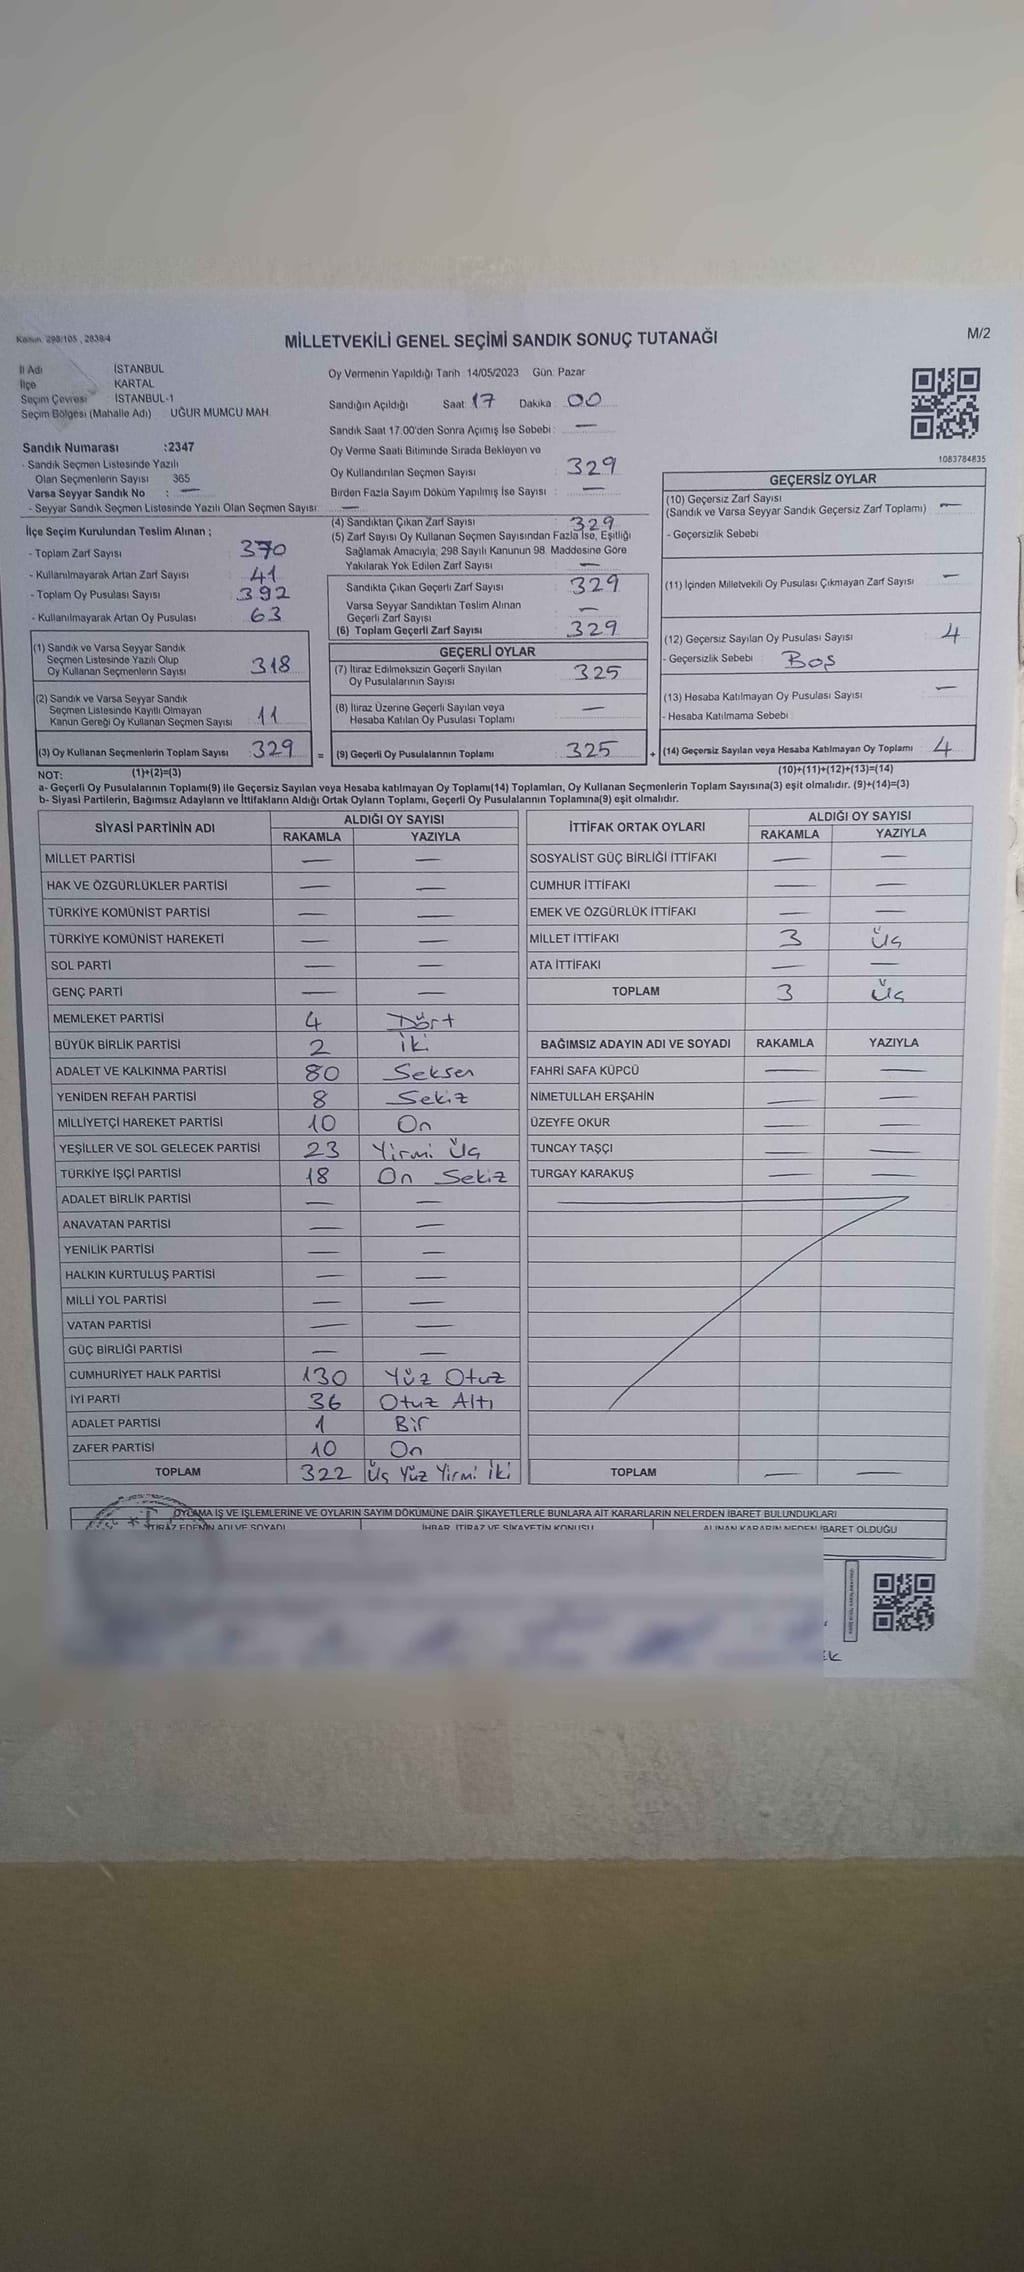 Kanun: 298/105 , 2839/4
MİLLETVEKİLİ GENEL SEÇİMİ SANDIK SONUÇ TUTANAĞI
M/2
İl Adı İSTANBUL
İlçe KARTAL
Seçim Çevresi İSTANBUL-1
Seçim Bölgesi (Mahalle Adı) UĞUR MUMCU MAH.
Sandık Numarası :2347
- Sandık Seçmen Listesinde Yazılı
Olan Seçmenlerin Sayısı 365
Varsa Seyyar Sandık No : —
- Seyyar Sandık Seçmen Listesinde Yazılı Olan Seçmen Sayısı —
İlçe Seçim Kurulundan Teslim Alınan ;
- Toplam Zarf Sayısı 370
- Kullanılmayarak Artan Zarf Sayısı 41
- Toplam Oy Pusulası Sayısı 392
- Kullanılmayarak Artan Oy Pusulası 63
(1) Sandık ve Varsa Seyyar Sandık
Seçmen Listesinde Yazılı Olup
Oy Kullanan Seçmenlerin Sayısı 318
(2) Sandık ve Varsa Seyyar Sandık
Seçmen Listesinde Kayıtlı Olmayan
Kanun Gereği Oy Kullanan Seçmen Sayısı 11
(3) Oy Kullanan Seçmenlerin Toplam Sayısı 329 =
Oy Vermenin Yapıldığı Tarih 14/05/2023 Gün: Pazar
Sandığın Açıldığı Saat: 17 Dakika : 00
Sandık Saat 17.00'den Sonra Açımış İse Sebebi : —
Oy Verme Saati Bitiminde Sırada Bekleyen ve
Oy Kullandırılan Seçmen Sayısı : 329
Birden Fazla Sayım Döküm Yapılmış İse Sayısı : —
(4) Sandıktan Çıkan Zarf Sayısı : 329
(5) Zarf Sayısı Oy Kullanan Seçmen Sayısından Fazla İse, Eşitliği
Sağlamak Amacıyla, 298 Sayılı Kanunun 98. Maddesine Göre
Yakılarak Yok Edilen Zarf Sayısı : —
Sandıkta Çıkan Geçerli Zarf Sayısı : 329
Varsa Seyyar Sandıktan Teslim Alınan
Geçerli Zarf Sayısı : —
(6) Toplam Geçerli Zarf Sayısı : 329
GEÇERLİ OYLAR
(7) İtiraz Edilmeksizin Geçerli Sayılan
Oy Pusulalarının Sayısı : 325
(8) İtiraz Üzerine Geçerli Sayılan veya
Hesaba Katılan Oy Pusulası Toplamı : —
(9) Geçerli Oy Pusulalarının Toplamı : 325 +
1083784835
GEÇERSİZ OYLAR
(10) Geçersiz Zarf Sayısı
(Sandık ve Varsa Seyyar Sandık Geçersiz Zarf Toplamı) : —
- Geçersizlik Sebebi
(11) İçinden Milletvekili Oy Pusulası Çıkmayan Zarf Sayısı : —
(12) Geçersiz Sayılan Oy Pusulası Sayısı : 4
- Geçersizlik Sebebi : Boş
(13) Hesaba Katılmayan Oy Pusulası Sayısı : —
- Hesaba Katılmama Sebebi :
(14) Geçersiz Sayılan veya Hesaba Katılmayan Oy Toplamı : 4
NOT: (1)+(2)=(3) (10)+(11)+(12)+(13)=(14)
a- Geçerli Oy Pusulalarının Toplamı(9) ile Geçersiz Sayılan veya Hesaba katılmayan Oy Toplamı(14) Toplamları, Oy Kullanan Seçmenlerin Toplam Sayısına(3) eşit olmalıdır. (9)+(14)=(3)
b- Siyasi Partilerin, Bağımsız Adayların ve İttifakların Aldığı Ortak Oyların Toplamı, Geçerli Oy Pusulalarının Toplamına(9) eşit olmalıdır.
SİYASİ PARTİNİN ADI ALDIĞI OY SAYISI
RAKAMLA YAZIYLA
MİLLET PARTİSİ — —
HAK VE ÖZGÜRLÜKLER PARTİSİ — —
TÜRKİYE KOMÜNİST PARTİSİ — —
TÜRKİYE KOMÜNİST HAREKETİ — —
SOL PARTİ — —
GENÇ PARTİ — —
MEMLEKET PARTİSİ 4 Dört
BÜYÜK BİRLİK PARTİSİ 2 İki
ADALET VE KALKINMA PARTİSİ 80 Seksen
YENİDEN REFAH PARTİSİ 8 Sekiz
MİLLİYETÇİ HAREKET PARTİSİ 10 On
YEŞİLLER VE SOL GELECEK PARTİSİ 23 Yirmi Üç
TÜRKİYE İŞÇİ PARTİSİ 18 On Sekiz
ADALET BİRLİK PARTİSİ — —
ANAVATAN PARTİSİ — —
YENİLİK PARTİSİ — —
HALKIN KURTULUŞ PARTİSİ — —
MİLLİ YOL PARTİSİ — —
VATAN PARTİSİ — —
GÜÇ BİRLİĞİ PARTİSİ — —
CUMHURİYET HALK PARTİSİ 130 Yüz Otuz
İYİ PARTİ 36 Otuz Altı
ADALET PARTİSİ 1 Bir
ZAFER PARTİSİ 10 On
TOPLAM 322 Üç Yüz Yirmi İki
İTTİFAK ORTAK OYLARI ALDIĞI OY SAYISI
RAKAMLA YAZIYLA
SOSYALİST GÜÇ BİRLİĞİ İTTİFAKI — —
CUMHUR İTTİFAKI — —
EMEK VE ÖZGÜRLÜK İTTİFAKI — —
MİLLET İTTİFAKI 3 Üç
ATA İTTİFAKI — —
TOPLAM 3 Üç
BAĞIMSIZ ADAYIN ADI VE SOYADI RAKAMLA YAZIYLA
FAHRİ SAFA KÜPCÜ — —
NİMETULLAH ERŞAHİN — —
ÜZEYFE OKUR — —
TUNCAY TAŞÇI — —
TURGAY KARAKUŞ — —
TOPLAM — —
OYLAMA İŞ VE İŞLEMLERİNE VE OYLARIN SAYIM DÖKÜMÜNE DAİR ŞİKAYETLERLE BUNLARA AİT KARARLARIN NELERDEN İBARET BULUNDUKLARI
İTİRAZ EDENİN ADI VE SOYADI İHBAR, İTİRAZ VE ŞİKAYETİN KONUSU ALINAN KARARIN NEDEN İBARET OLDUĞU
EK